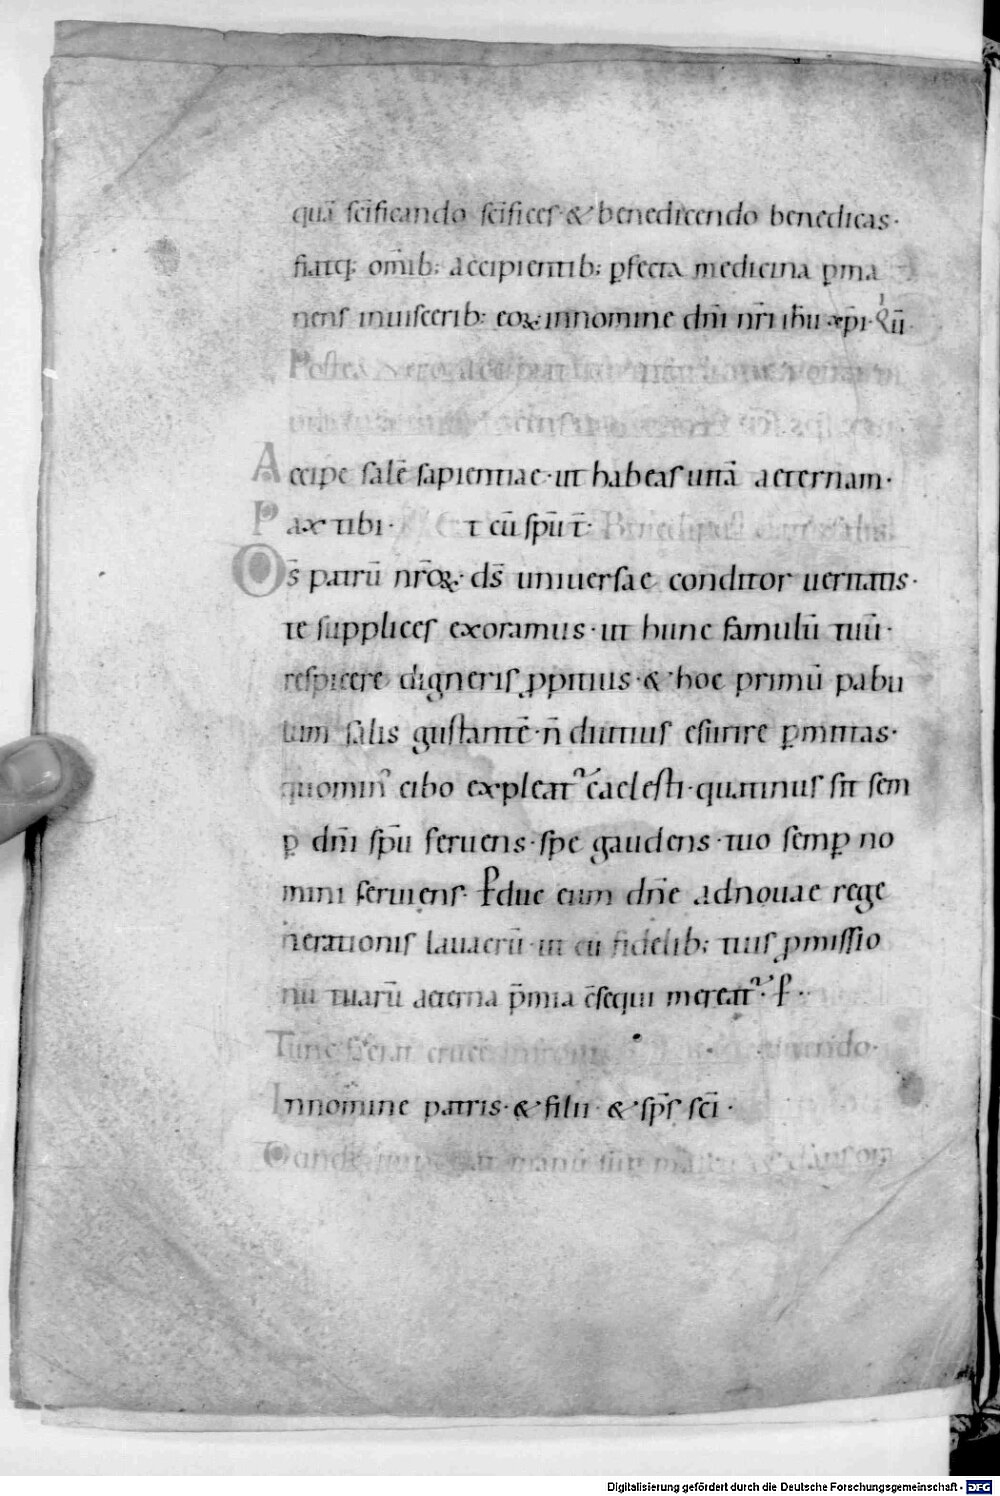 quā sc̄ificando sc̄ifices & benedicendo benedicas·
fiatq; om̄ib; accipientib; ꝑfecta medicina ꝑma
nens inuisceribꝫ eoꝝ· innomine dn̄i nr̄i ihū xp̄i· Qui
Postea vero
Accipe salē sapientiae· ut habeas uitā aeternam·
Pax tibi· &cū sp̄u t̄·
Os̄ patrū nr̄oꝝ· ds̄ uniuersae conditor ueritatis·
te supplices exoramus· ut hunc famulū tuū·
respicere digneris ꝓpitius· & hoc primū pabu
lum salis gustantē· n̄ diutius esurire ꝑmittas·
quomin᾿ cibo expleat᷑ caelesti· quatinus sit sem
ꝑ dn̄i sp̄u feruens· spe gaudens· tuo semꝑ no
mini seruiens· Perduc eum dn̄e adnouae rege
nerationis lauacrū· ut cū fidelib; tuis ꝓmissio
nū tuarū aeterna p̄mia c̄sequi mereat᷑· P·
Tunc
Innomine patris· & filii· & sp̄s sc̄i·
Digitalisierung gefördert durch die Deutsche Forschungsgemeinschaft - DFG